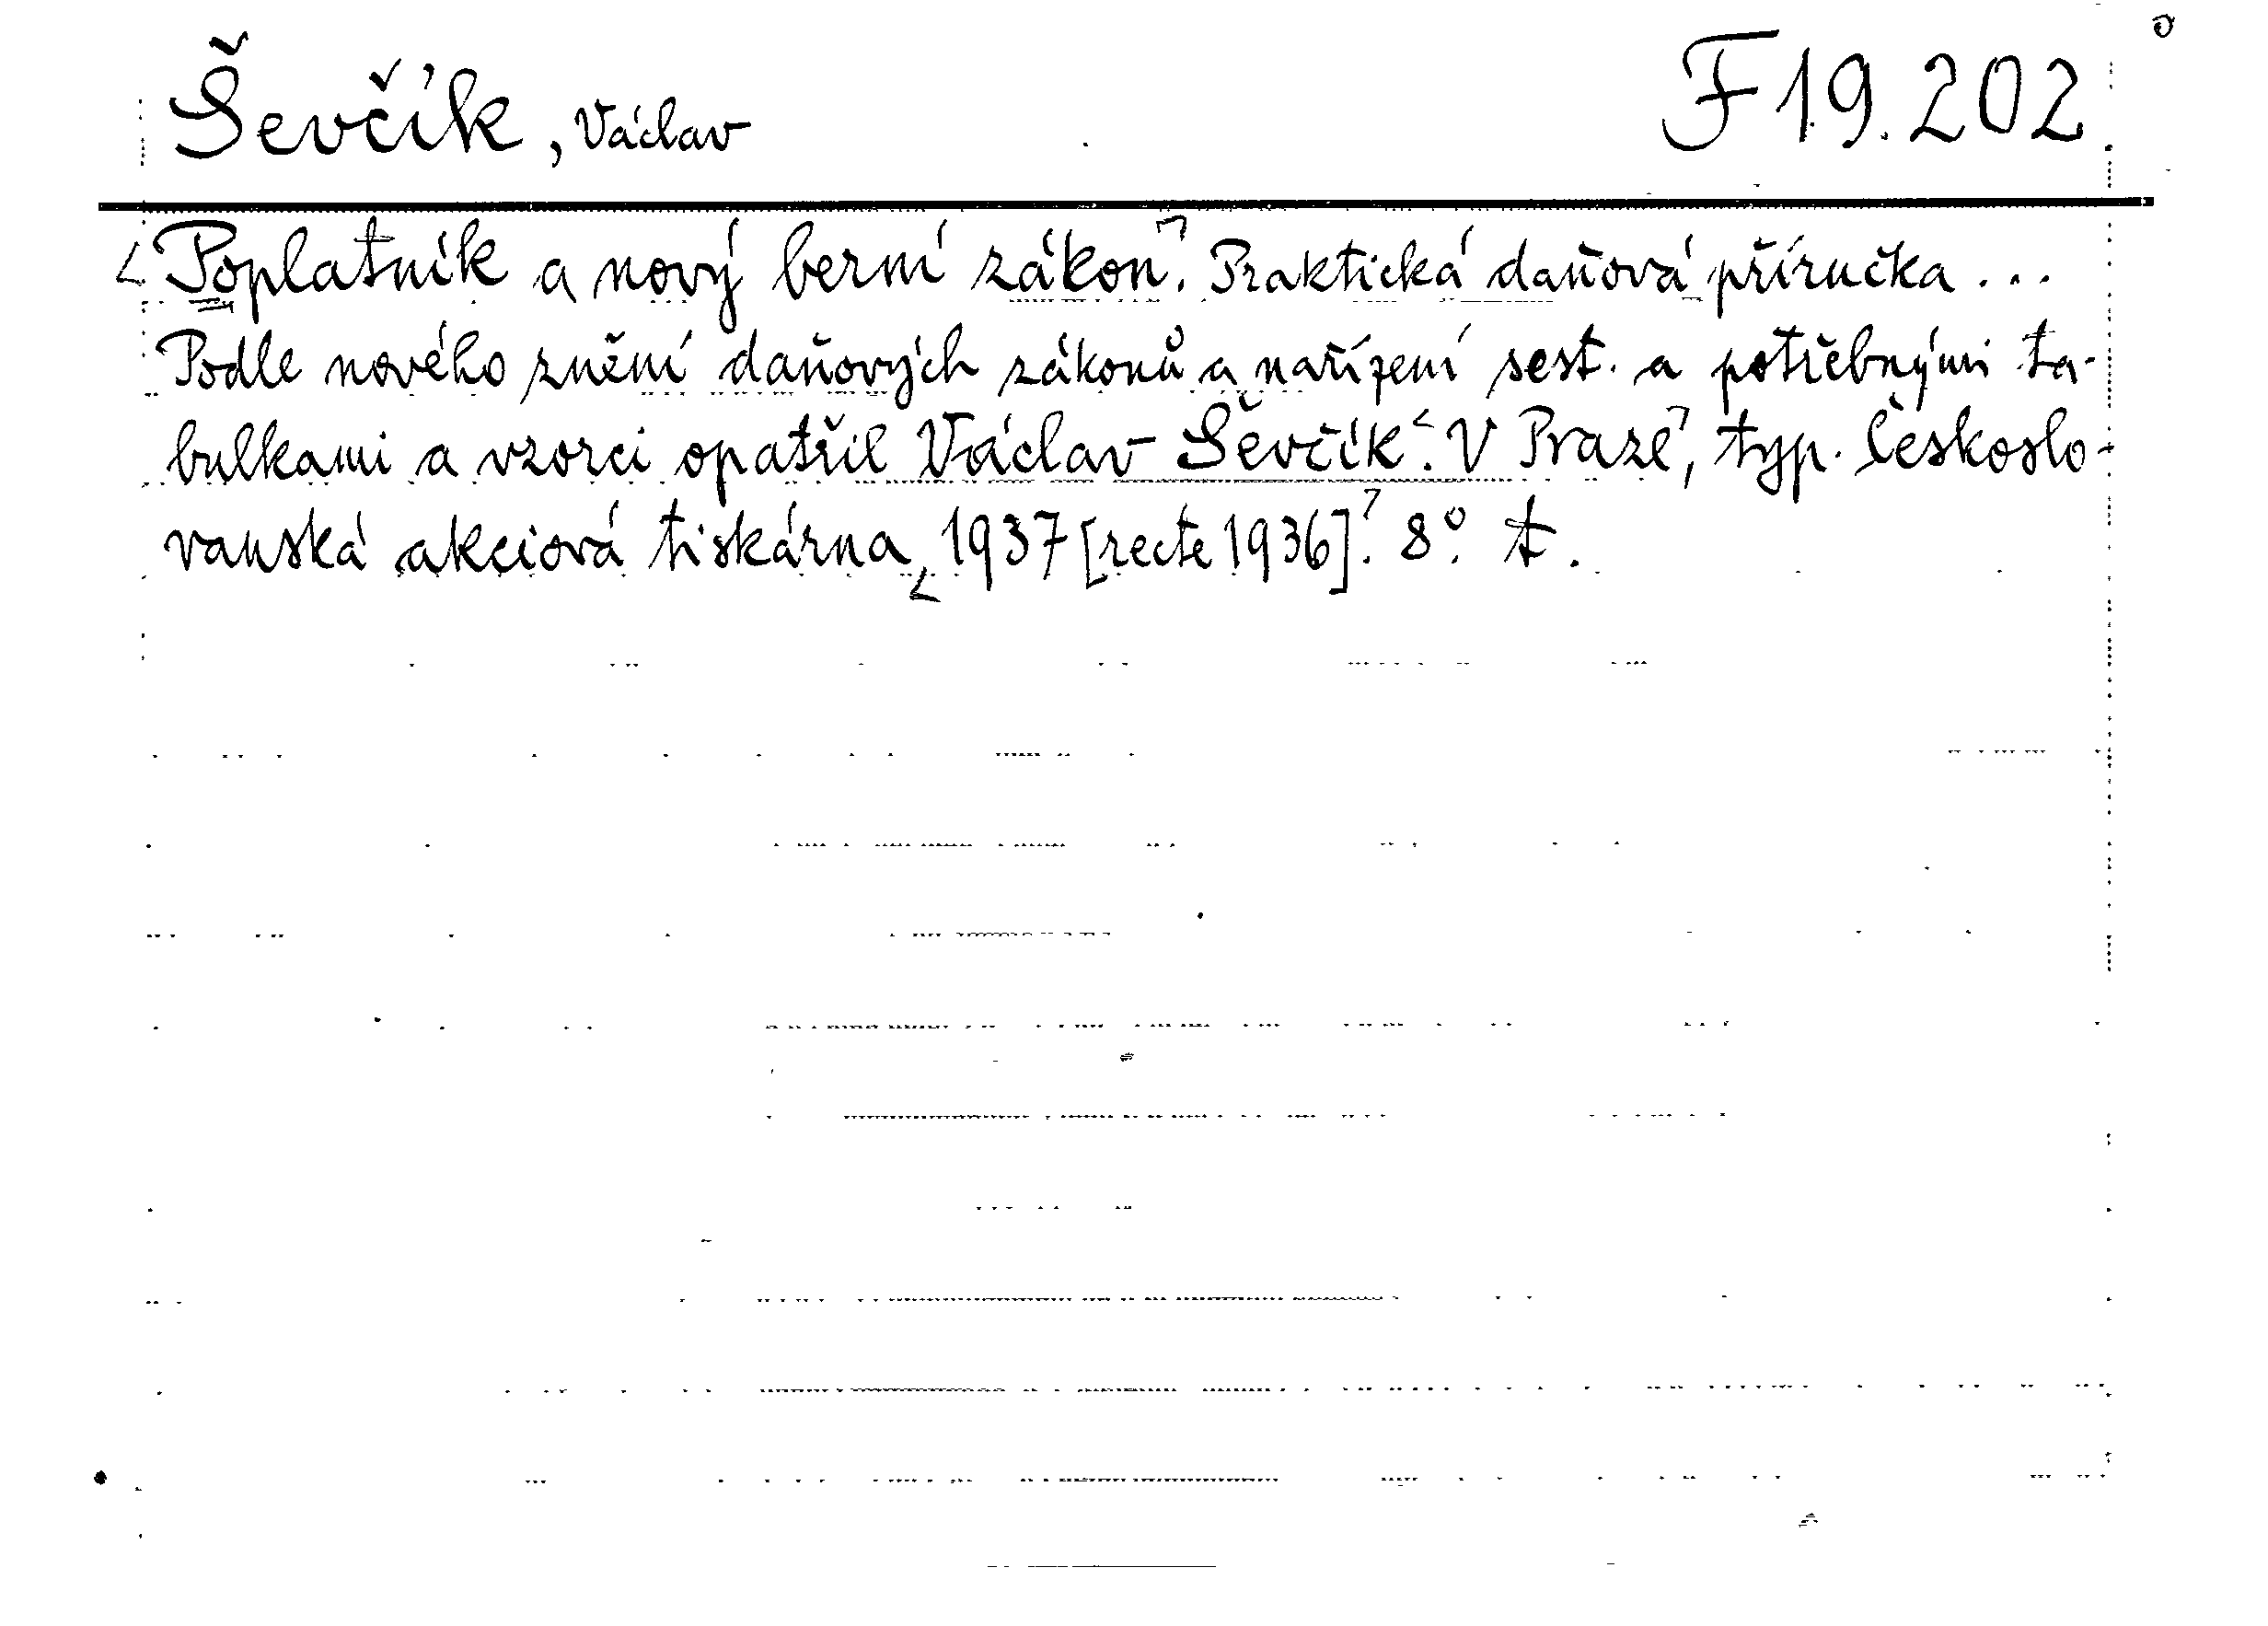 Ševčík, Václav F 19.202
Poplatník a nový berní zákon. Praktická daňová příručka ...
Podle nového znění daňových zákonů a nařízení sest. a potřebnými ta-
bulkami a vzorci opatřil Václav Ševčík. V Praze, typ. Českoslo-
vanská akciová tiskárna, 1937 [recte 1936]. 8°. t.